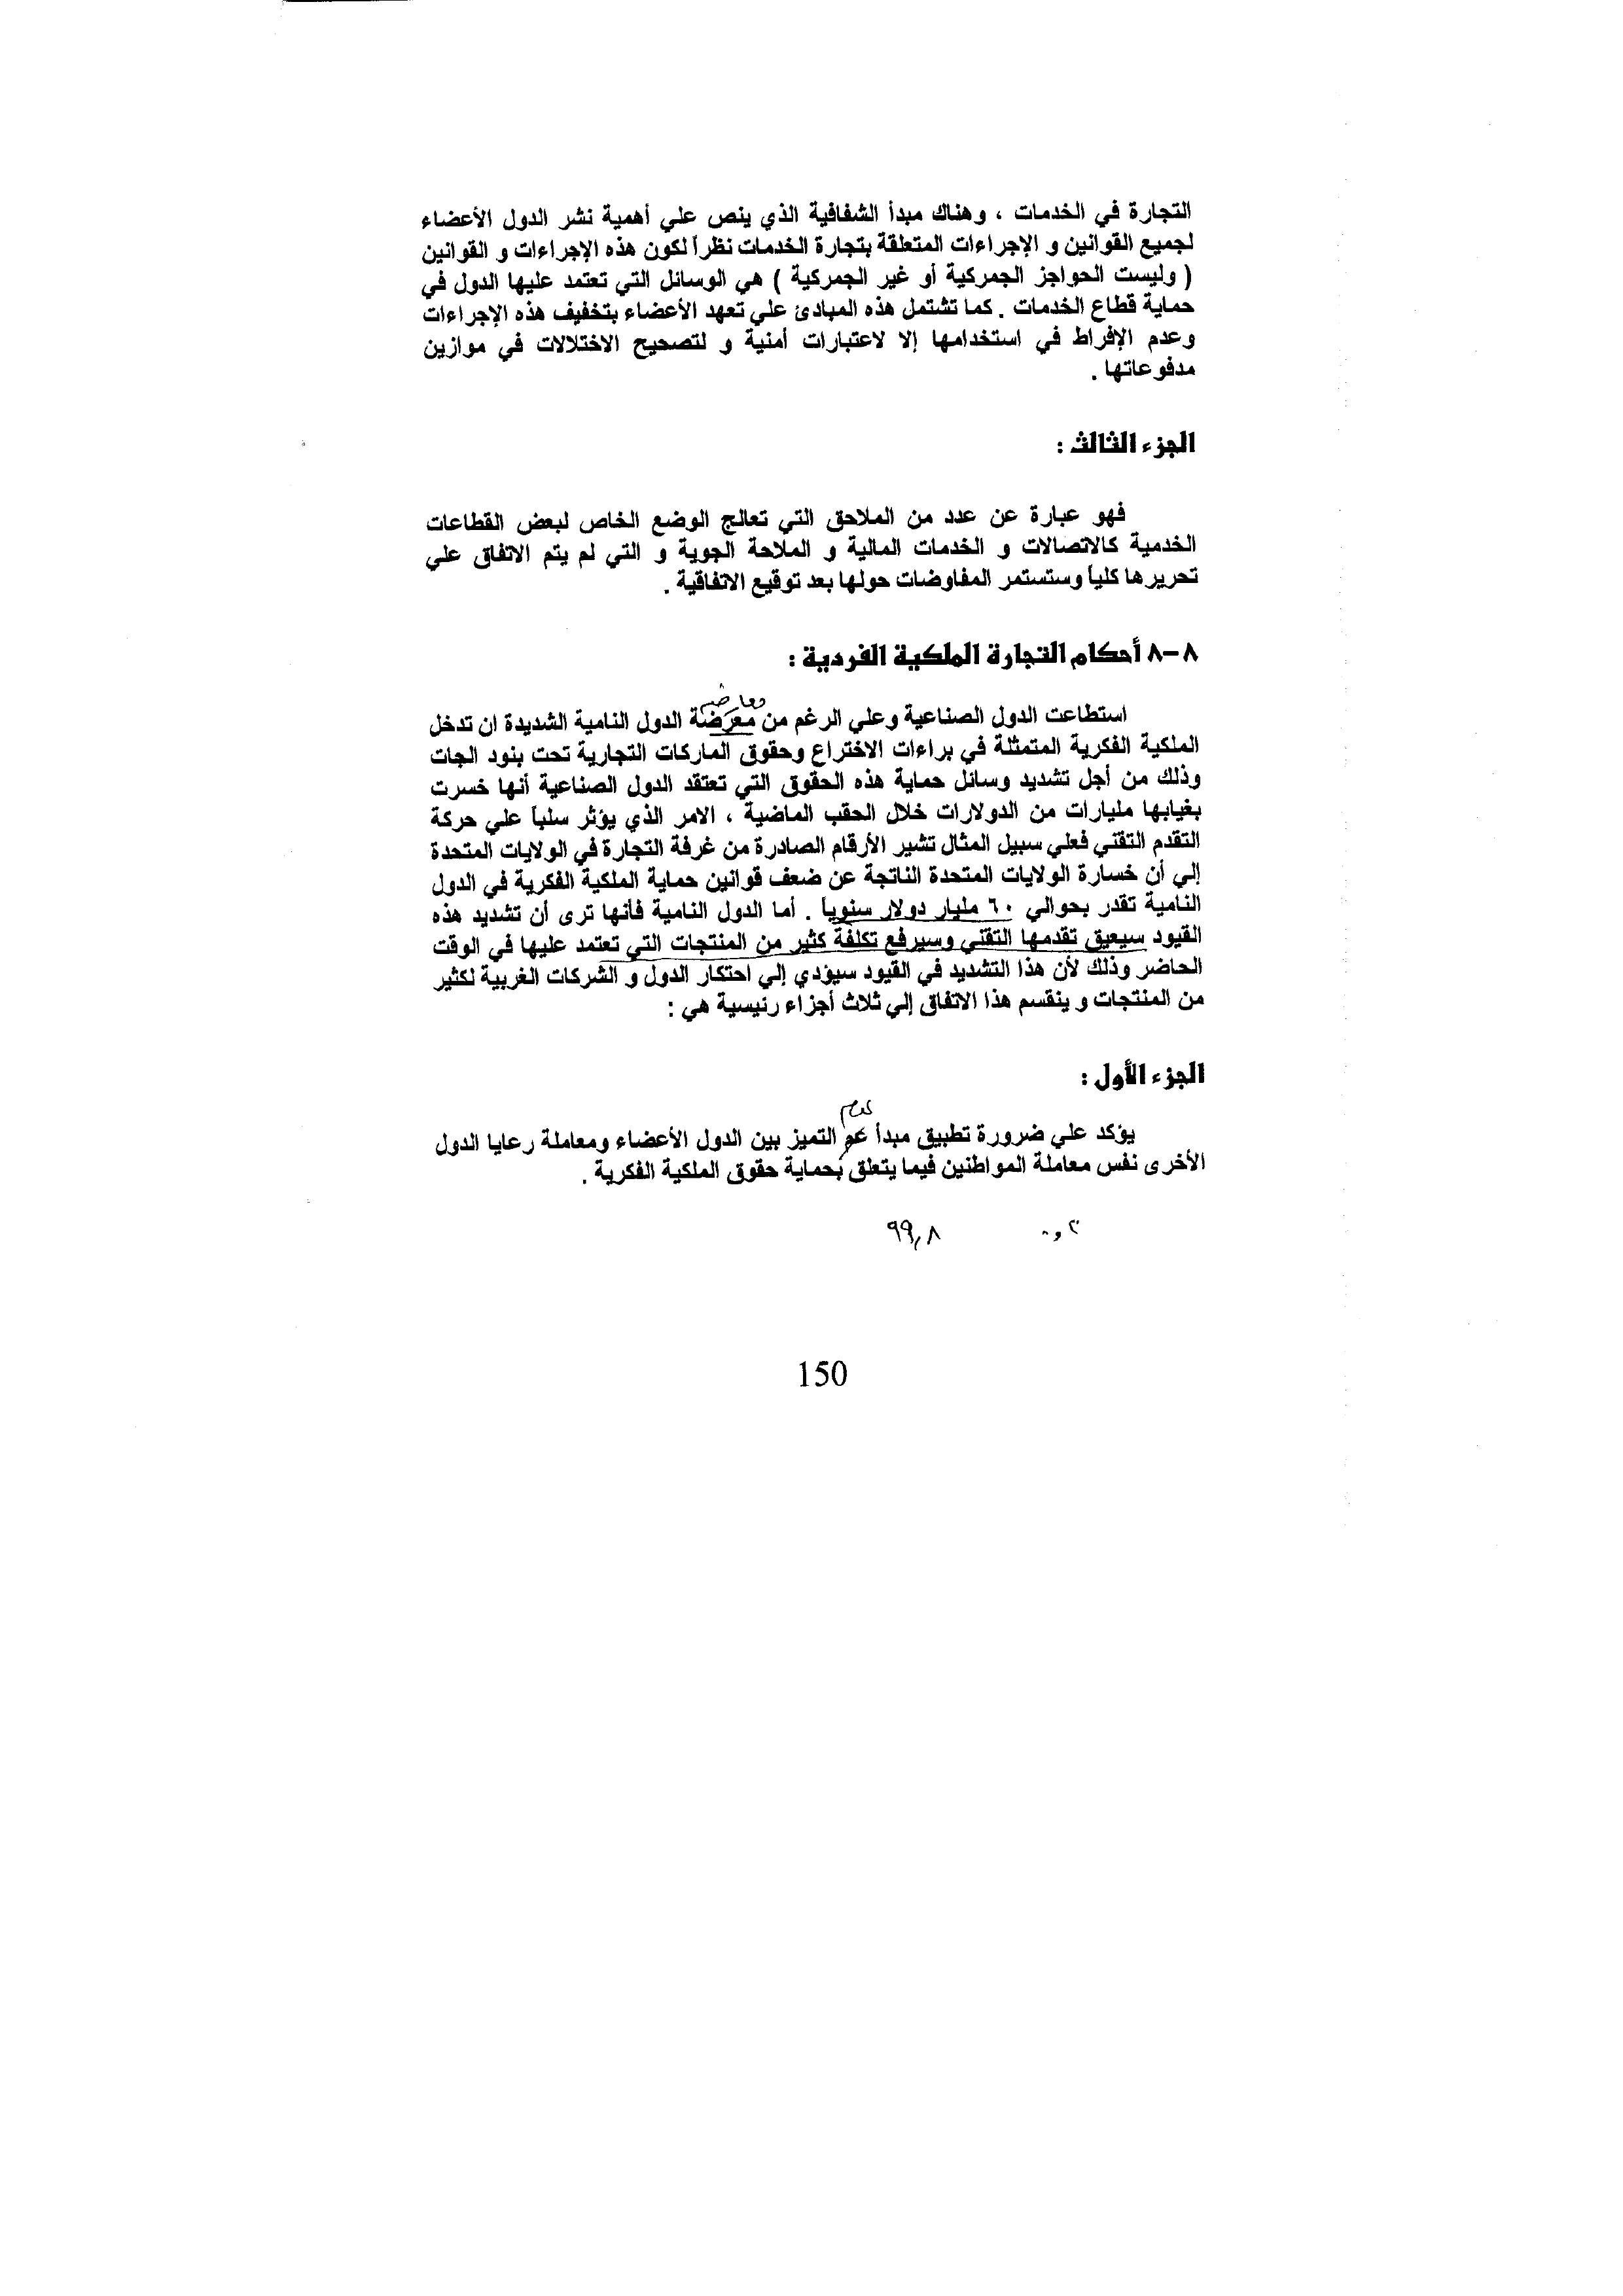 التجارة في الخدمات ، وهناك مبدأ الشفافية الذي ينص علي أهمية نشر الدول الأعضاء
لجميع القوانين و الإجراءات المتعلقة بتجارة الخدمات نظراً لكون هذه الإجراءات و القوانين
( وليست الحواجز الجمركية أو غير الجمركية ) هي الوسائل التي تعتمد عليها الدول في
حماية قطاع الخدمات . كما تشتمل هذه المبادئ علي تعهد الأعضاء بتخفيف هذه الإجراءات
وعدم الإفراط في استخدامها إلا لاعتبارات أمنية و لتصحيح الاختلالات في موازين
مدفوعاتها .
الجزء الثالث :
فهو عبارة عن عدد من الملاحق التي تعالج الوضع الخاص لبعض القطاعات
الخدمية كالاتصالات و الخدمات المالية و الملاحة الجوية و التي لم يتم الاتفاق علي
تحريرها كلياً وستستمر المفاوضات حولها بعد توقيع الاتفاقية .
٨-٨ أحكام التجارة الملكية الفردية :
معارضة
استطاعت الدول الصناعية وعلي الرغم من معرضة الدول النامية الشديدة ان تدخل
الملكية الفكرية المتمثلة في براءات الاختراع وحقوق الماركات التجارية تحت بنود الجات
وذلك من أجل تشديد وسائل حماية هذه الحقوق التي تعتقد الدول الصناعية أنها خسرت
بغيابها مليارات من الدولارات خلال الحقب الماضية ، الامر الذي يؤثر سلباً علي حركة
التقدم التقني فعلي سبيل المثال تشير الأرقام الصادرة من غرفة التجارة في الولايات المتحدة
إلي أن خسارة الولايات المتحدة الناتجة عن ضعف قوانين حماية الملكية الفكرية في الدول
النامية تقدر بحوالي ٦٠ مليار دولار سنوياً . أما الدول النامية فأنها ترى أن تشديد هذه
القيود سيعيق تقدمها التقني وسيرفع تكلفة كثير من المنتجات التي تعتمد عليها في الوقت
الحاضر وذلك لأن هذا التشديد في القيود سيؤدي إلي احتكار الدول و الشركات الغربية لكثير
من المنتجات و ينقسم هذا الاتفاق إلي ثلاث أجزاء رئيسية هي :
الجزء الأول :
عدم
يؤكد علي ضرورة تطبيق مبدأ عم التميز بين الدول الأعضاء ومعاملة رعايا الدول
الأخرى نفس معاملة المواطنين فيما يتعلق بحماية حقوق الملكية الفكرية .
٩٩,٨
150